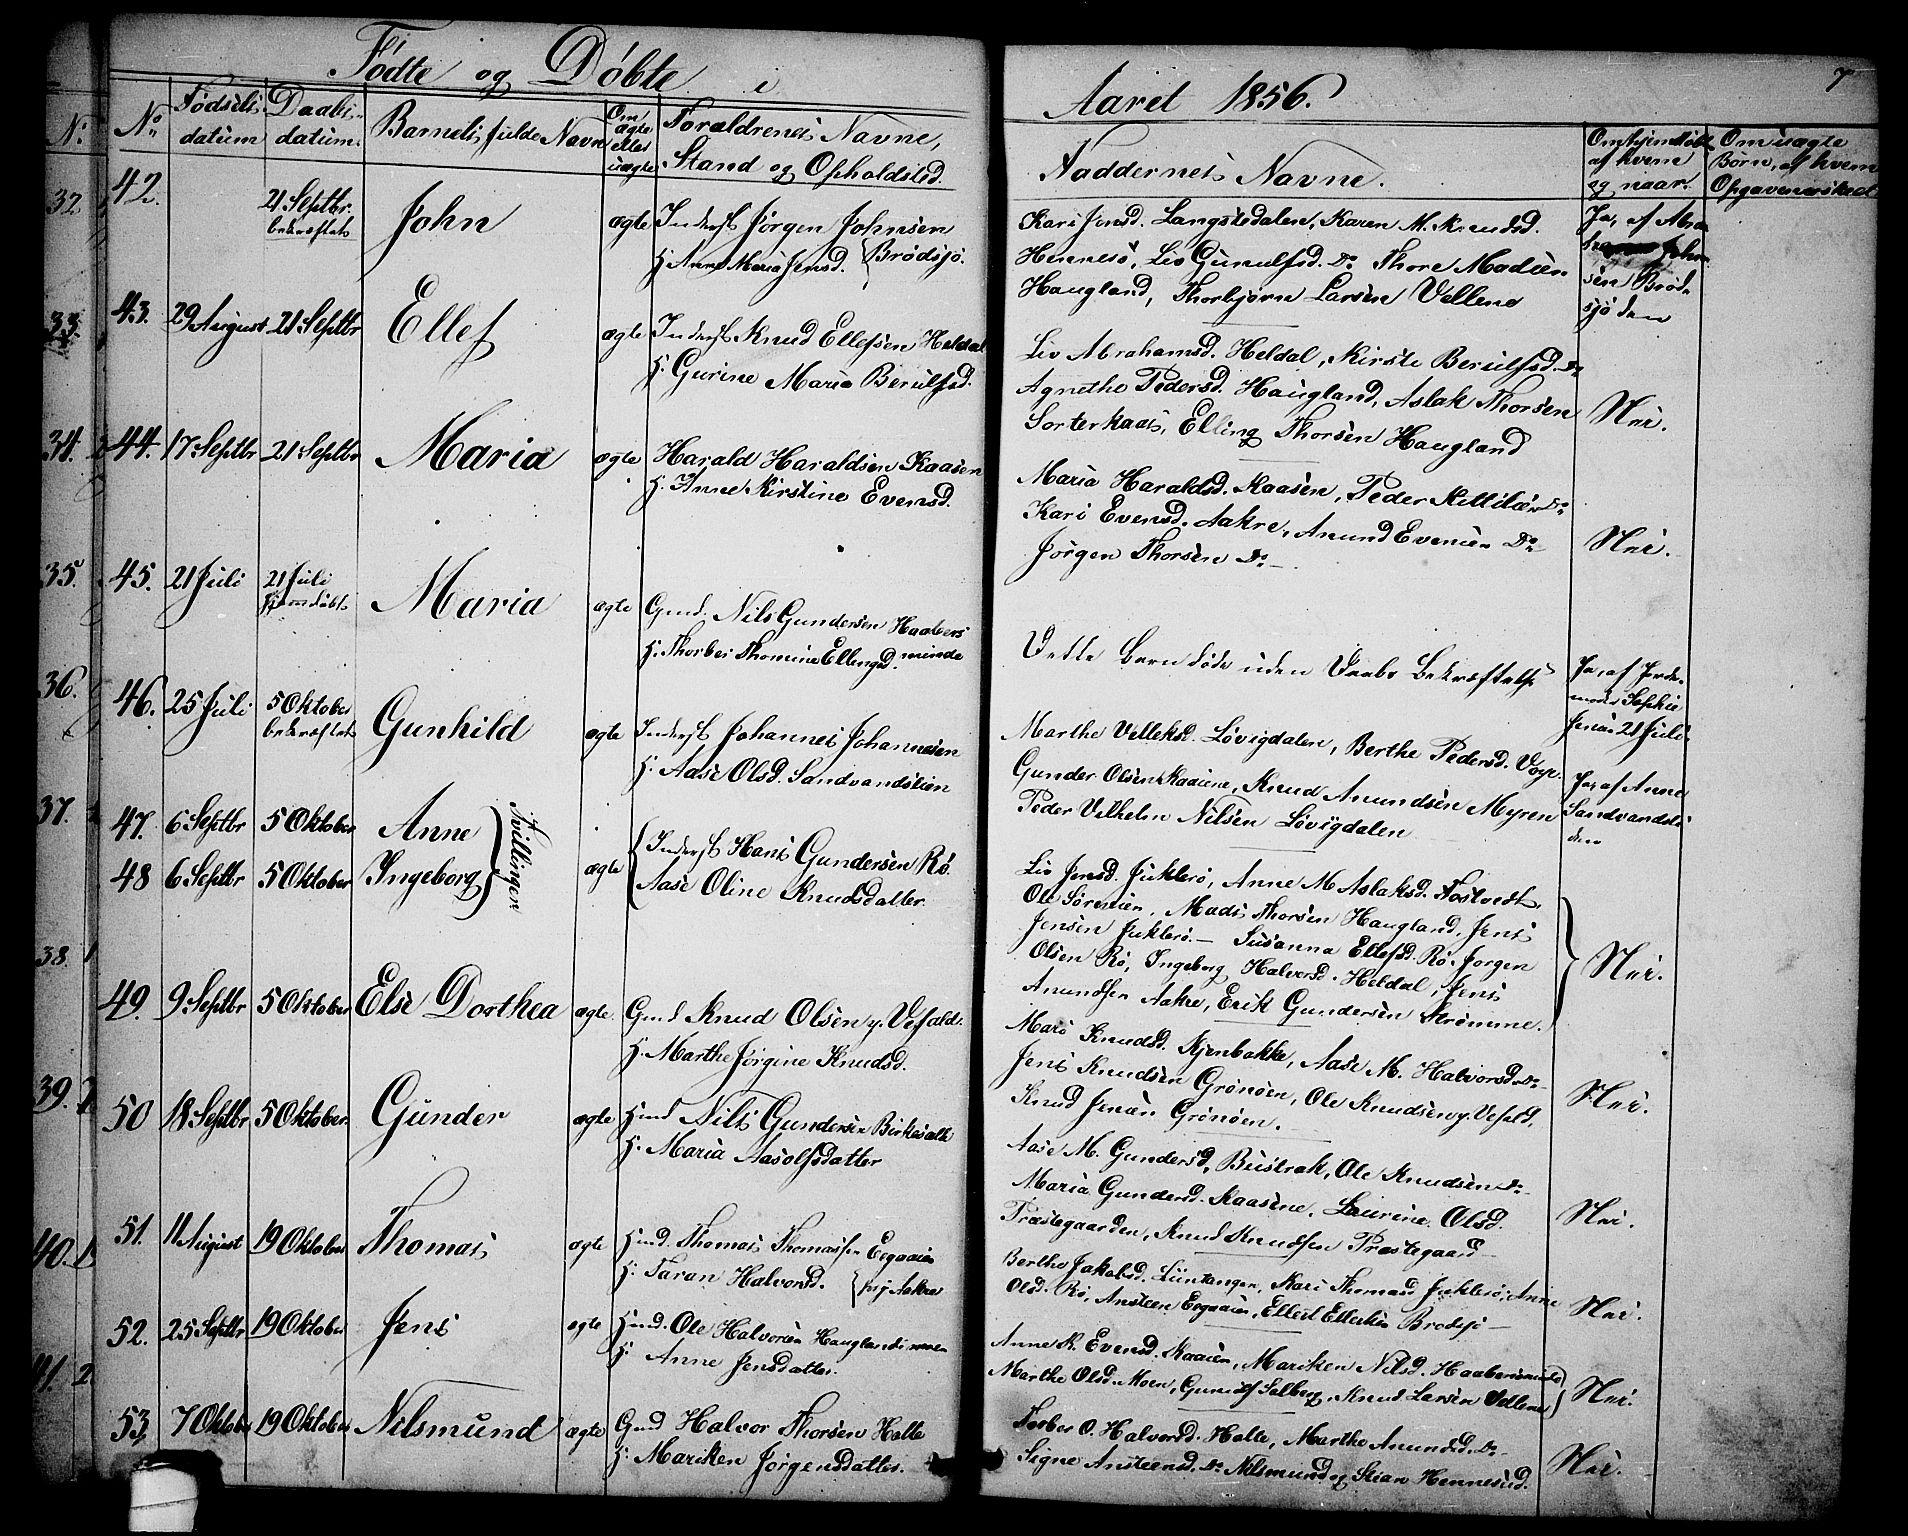 Födte og Döbte i
Aaret 1856.
7
No
Födsels datum
Daabs datum
Barnets fulde Navn
Om ægte eller uægte
Foraldrenes Navne,
Stand og Opholdsted.
Faddernes Navne.
Om hjemdöbt af hvem og naar.
Om uægte Börn, af hvem Opgaven er skeet
42.
21 Septbr.
bekræftet
John
ægte
Inderst Jörgen Johnsen
H. Anne Maria Jensd. Brödsjö.
Kari Jensd. Langstedalen, Karen M. Knudsd.
Hennesö, Liv Gunulfsd. Do Thore Madsen
Haugland, Thorbjörn Larsen Vellene
Ja, af Abra
John
sen Bröd
sjö den
43. 29 August 21 Septbr
Ellef
ægte
Inderst Knud Ellefsen Heldal
H. Gurine Maria Berulfsd.
Liv Abrahamsd. Heldal, Kirste Berulfsd. Do
Agnethe Pedersd. Haugland, Aslak Thorsen
Sorterkaas, Elling Thorsen Haugland
Nei.
44. 17 Septbr 21 Septbr
Maria
ægte
Harald Haraldsen Kaasen
H. Anne Kirstine Evensd.
Maria Haraldsd. Kaasen, Peder Kittilsen Do
Kari Evensd. Aakre, Anund Evensen Do
Jörgen Thorsen Do
Nei.
45. 21 Juli 21 Juli
hjemdöbt
Maria
ægte
Gmd. Nils Gundersen Haabers
H. Thorber Thomine Ellingsd. minde
Dette Barn döde uden Daabs Bekræftelse
Ja, af Jorde
moder Sophie
Jensd. 21 Juli
46. 25 Juli 5 Oktober
bekræftet
Gunhild
ægte
Inderst Johannes Johannesen
H. Aase Olsd. Sandvandslien
Marthe Velleksd. Lövigdalen, Berthe Pedersd.
Gunder Olsen Kaasene, Knud Anundsen Myren
Peder Vilhelm Nilsen Lövigdalen
Ja, af Anne
Sandvandsli
den
47. 6 Septbr 5 Oktober
Anne
48 6 Septbr 5 Oktober
Ingeborg
Tvillinger
ægte
Inderst Hans Gundersen Rö.
Aase Oline Knudsdatter
Liv Jensd. Juklerö, Anne M. Aslaksd. Tostvedt,
Ole Sörensen, Mads Thorsen Haugland, Jens
Jensen Juklerö. — Susanna Ellefsd. Rö. Jorgen
Olsen Rö, Ingeborg Halvorsd. Heldal, Jens
Anundsen Aakre, Erik Gundersen Strömme.
Nei.
49. 9 Septbr 5 Oktober
Else Dorthea
ægte
Gmd Knud Olsen y. Vefald.
H. Marthe Jörgine Knudsd.
Mari Knudsd. Kjenbakke, Aase M. Halvorsd. Do
Jens Knudsen Grönöen, Ole Knudsen y. Vefald,
Knud Jensen Grönöen.
Nei.
50 18 Septbr 5 Oktober
Gunder
ægte
Hmd Nils Gundersen Birkesalte
H. Maria Aasolfsdatter
Aase M. Gundersd, Bustrak, Ole Knudsen Do
Maria Gundersd. Kaasene, Laurine Olsd.
Præstegaarden, Knud Knudsen Præstegaard
Nei.
51. 11 August 19 Oktober
Thomas
ægte
Hmd. Thomas Thomassen
H. Taran Halvorsd.
Berthe Jakobsd. Liintangen, Kari Thomasd Jukleröe, Anne
Olsd. Rö, Ansteen, Ellert Ellertsen Brödsjö
Nei.
52. 25 Septbr 19 Oktober
Jens
ægte
Hmd. Ole Halvorsen Hauglandsmoen
H. Anne Jensdatter.
Anne K. Evensd. Kaasen, Mariken Nilsd. Haabersminde
Marthe Olsd. Moen, Gunulf Solberg, Knud Larsen Vellene
Nei.
53. 7 Oktober 19 Oktober
Nilsmund
ægte
Gmd Halvor Thorsen Holte
H. Mariken Jörgensdatter.
Torber O. Halvorsd. Holte, Marthe Anundsd. Do
Signe Ansteensd. Do Nilsmund og Stian Hennesud.
Nei.
32.
33.
34.
35.
36.
37.
38. 1
39.
40. 1
41. 2